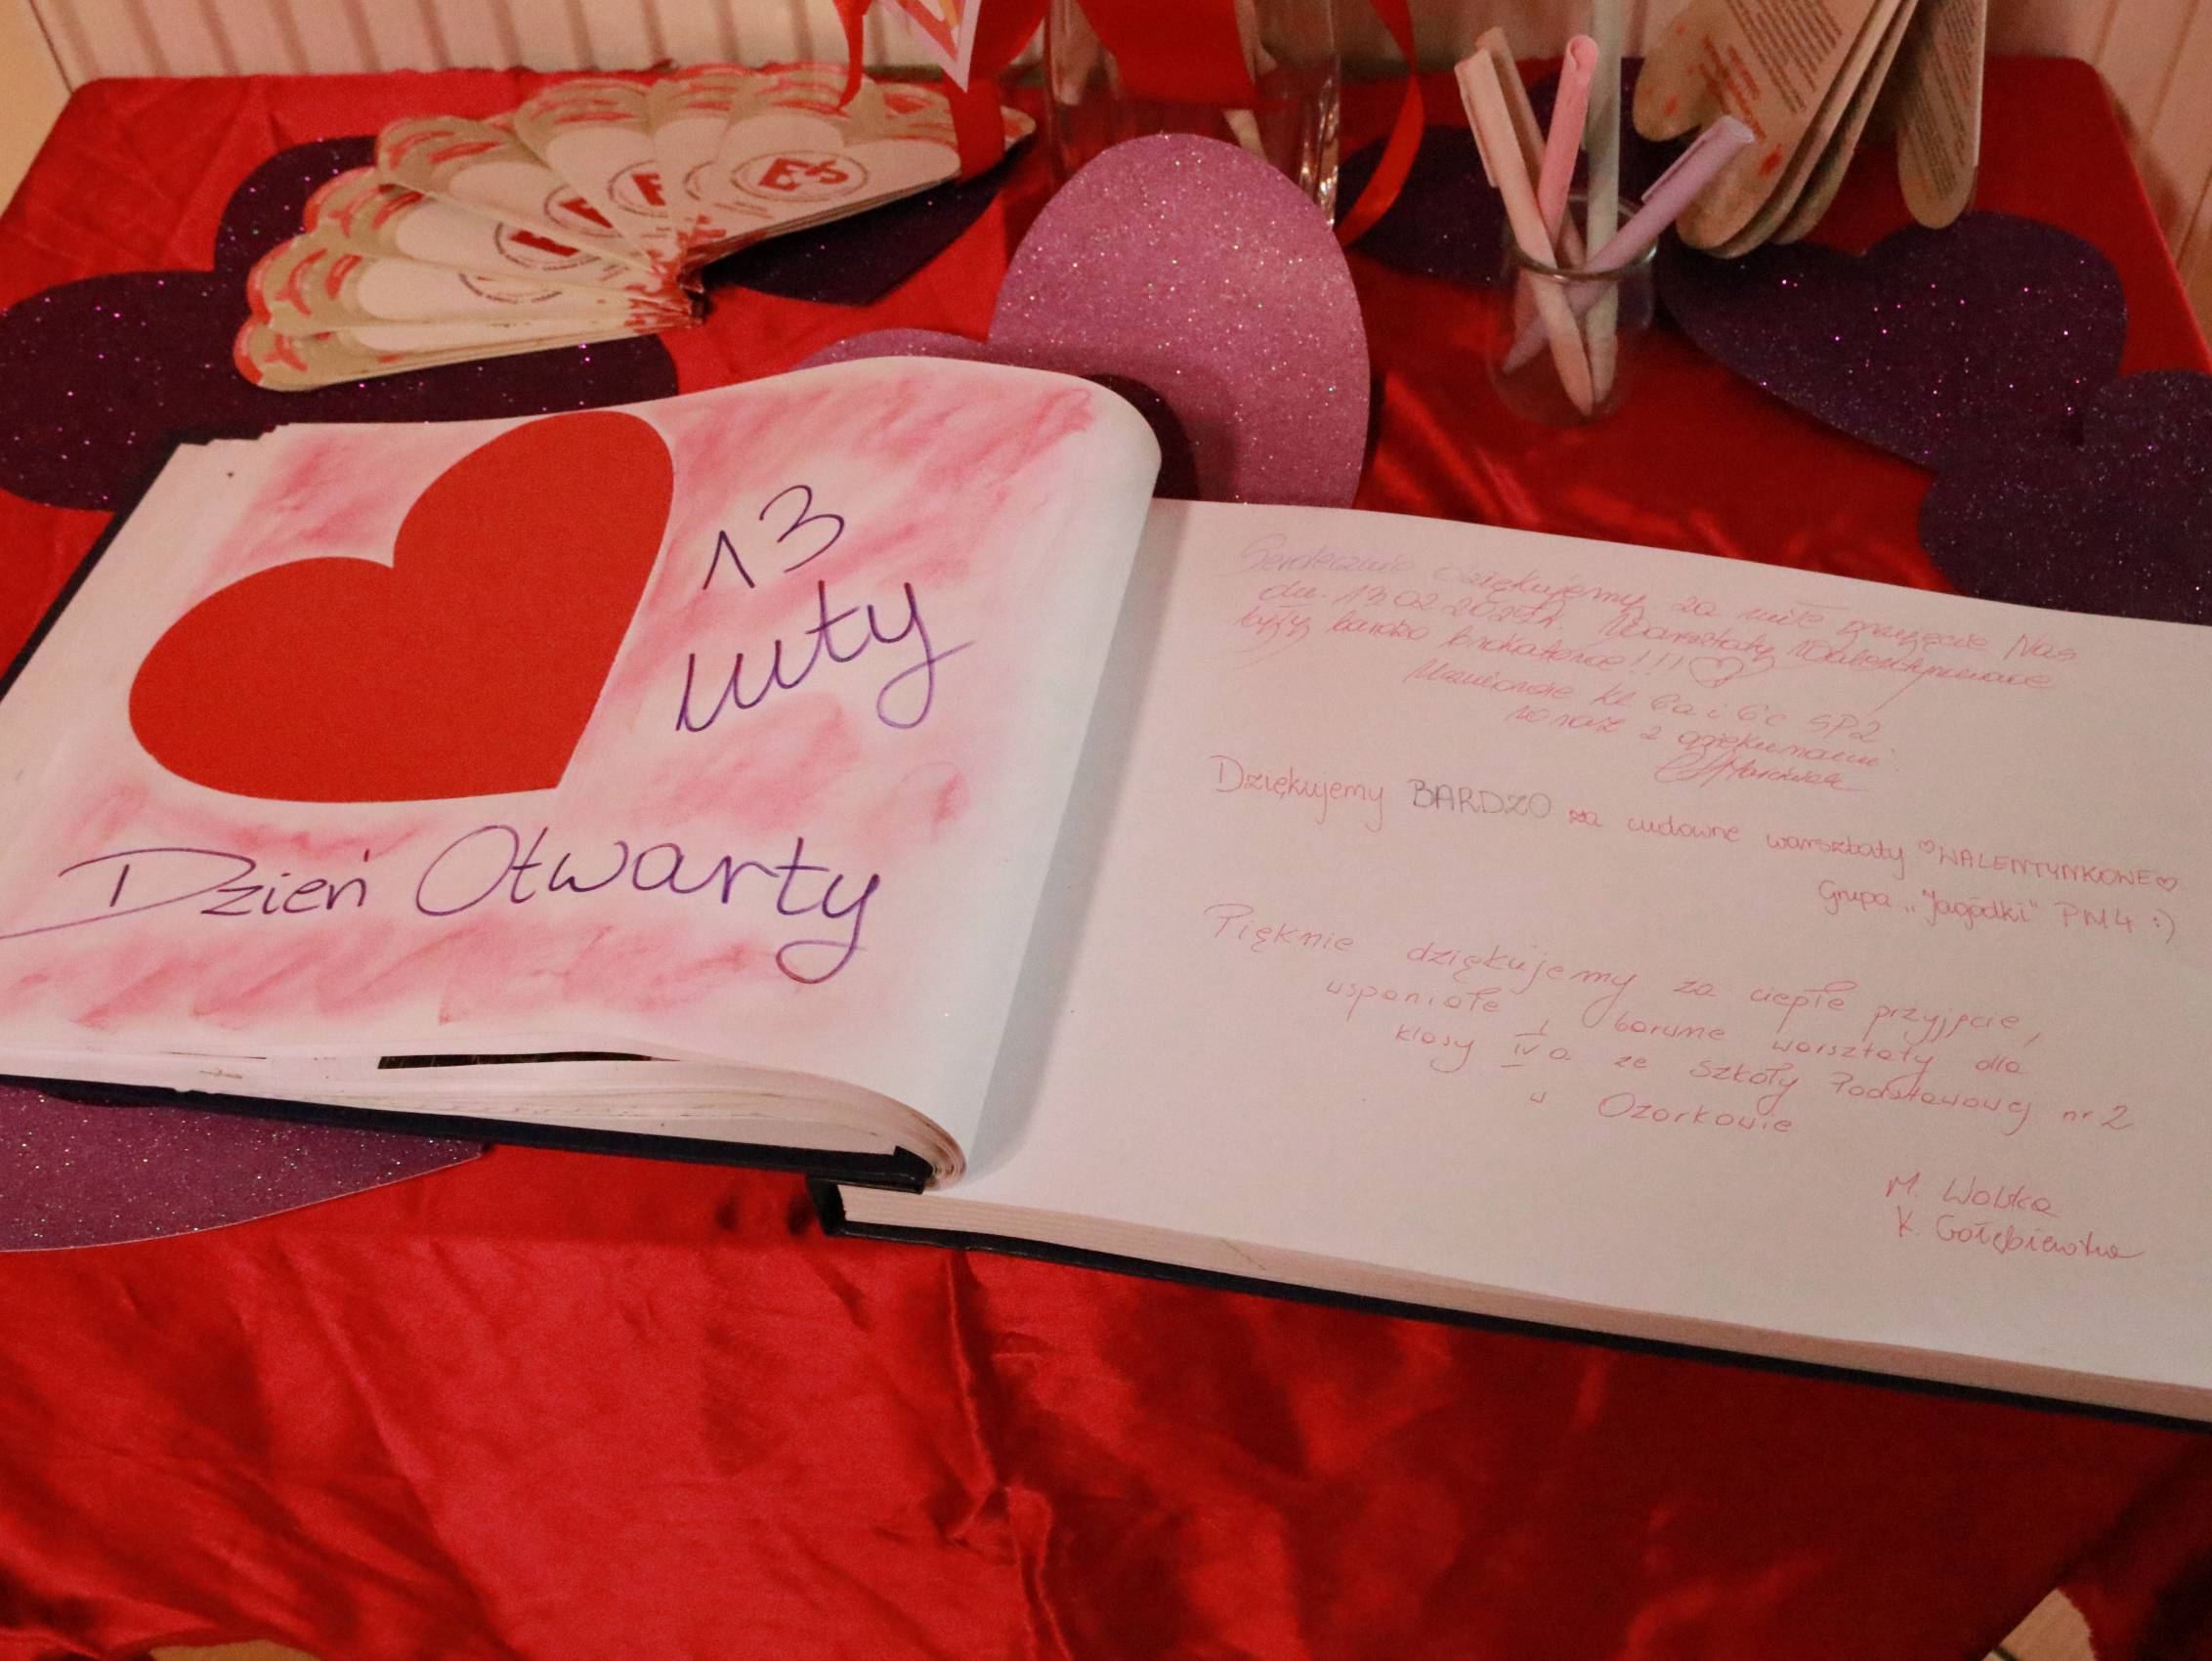 13
luty
Dzień Otwarty
Serdecznie dziękujemy za miłe przyjęcie Nas
dn. 13.02. Warsztaty walentynkowe
były bardzo brokatowe!!! ♡
Uczniowie kl 6a i 6c SP2
wraz z opiekunami.
Dziękujemy BARDZO za cudowne warsztaty ♡WALENTYNKOWE♡
Grupa „Jagódki" PM4 :)
Pięknie dziękujemy za ciepłe przyjęcie,
wspaniałe i barwne warsztaty dla
klasy IV a ze Szkoły Podstawowej nr 2
w Ozorkowie
M. Wolska
K. Gołębiewska